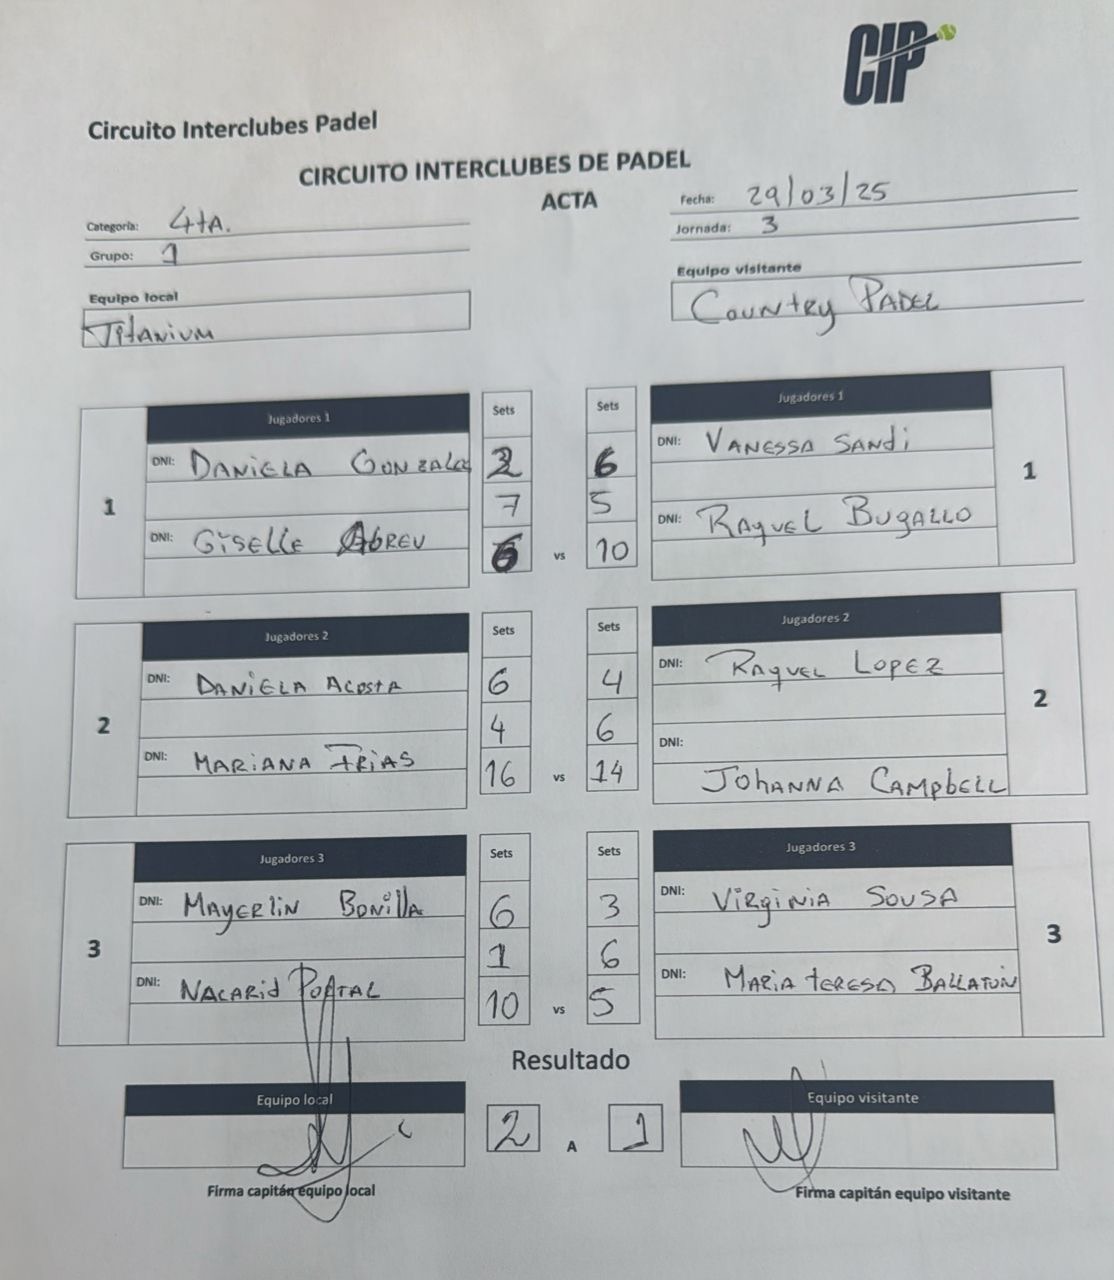 CIP
Circuito Interclubes Padel
CIRCUITO INTERCLUBES DE PADEL
ACTA
Categoría: 4tA.
Grupo: 1
Fecha: 29/03/25
Jornada: 3
Equipo local
Titanium
Equipo visitante
Country PADEL
Jugadores 1 Sets Sets Jugadores 1
DNI: DANIELA GONZALEZ 6 DNI: VANESSA SANDi
1 7 5 1
DNI: GiSELLE ABREU vs 10 DNI: RAQUEL BUGALLO
Jugadores 2 Sets Sets Jugadores 2
DNI: DANIELA ACOSTA 6 4 DNI: RAQUEL LOPEZ
2 4 6 2
DNI: MARIANA FRIAS 16 vs 14 DNI: JOHANNA CAMPbELL
Jugadores 3 Sets Sets Jugadores 3
DNI: MAYERlin BONillA 6 3 DNI: VIRginiA SOUSA
3 1 6 3
DNI: NACARid PORTAL 10 vs 5 DNI: MARiA TERESA
Resultado
Equipo local 2 A 1 Equipo visitante
Firma capitán equipo local
Firma capitán equipo visitante